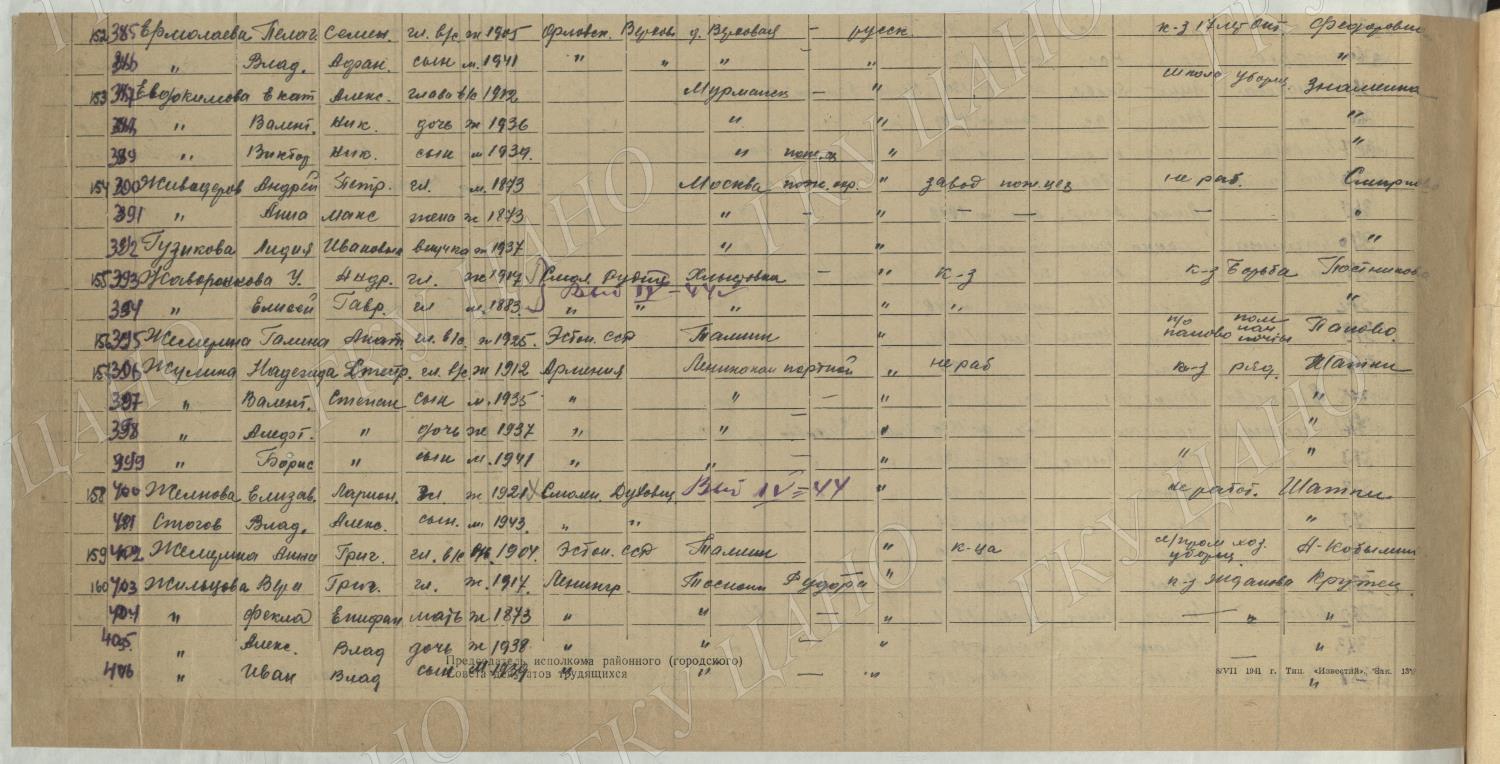 152 385 Ермолаева Пелаг. Семен. гл. в/с ж 1905 Орловск. Верхов. д. Верховая — русск. к-з 17 лет Окт. Федоровка
386 " Влад. Адриан. сын м. 1941 " " " " "
153 387 Евдокимова Екат. Алекс. глава в/с 1912 Мурманск — " школа уборщ. Знаменка
388 " Валент. Ник. дочь ж 1936 " " "
389 " Виктор Ник. сын м 1939. " "
154 390 Андрей Петр. гл. м. 1873 Москва пож. охр. " завод пож. цех не раб.
391 " Анна Макс жена ж 1873 " — " — — — "
392 Гузикова Лидия Ивановна внучка ж 1937 " " "
155 393 Жаворонкова У. Андр. гл. ж 1917 Смол. — " к-з к-з Борьба
394 " Елисей Гавр. гл м. 1883 " " " " " "
Выб IV-44
156 395 Галина гл. в/с. ж 1925. Эстон. ССР Талин " п/о паново пом нач почты Паново.
157 396 Жулина Надежда гл. в/с ж 1912 Армения Ленинакан портной " не раб к-з ряд. Шатки
397 " Валент. Степан сын м. 1935 " " — " "
398 " Алефт. " дочь ж 1937 " " — " "
399 " Борис " сын м. 1941 " " — " " "
158 400 Желнова Елизав. Ларион. гл ж 1921 Смолен. Духовщ Выб IV-44 " не работ. Шатки
401 Стогов Влад. Алекс. сын. м. 1943 " " "
159 402 Анна Григ. гл. в/с 1904. Эстон. ССР Таллин " к-ца с/пром хоз. уборщ. А-Кобылин
160 403 Жильцова Вера Григ. гл. ж. 1917. Ленингр. " к-з Жданова Крутец
404 " Фекла Епифан мать ж 1873 " " — " — " "
405 " Алекс. Влад дочь ж 1938 " " — " — "
406 " Иван Влад сын м 1939 " " — " "
Председатель исполкома районного (городского)
Совета депутатов трудящихся
8/VII 1941 г. Тип. «Известий». Зак.
ГКУ ЦАНО